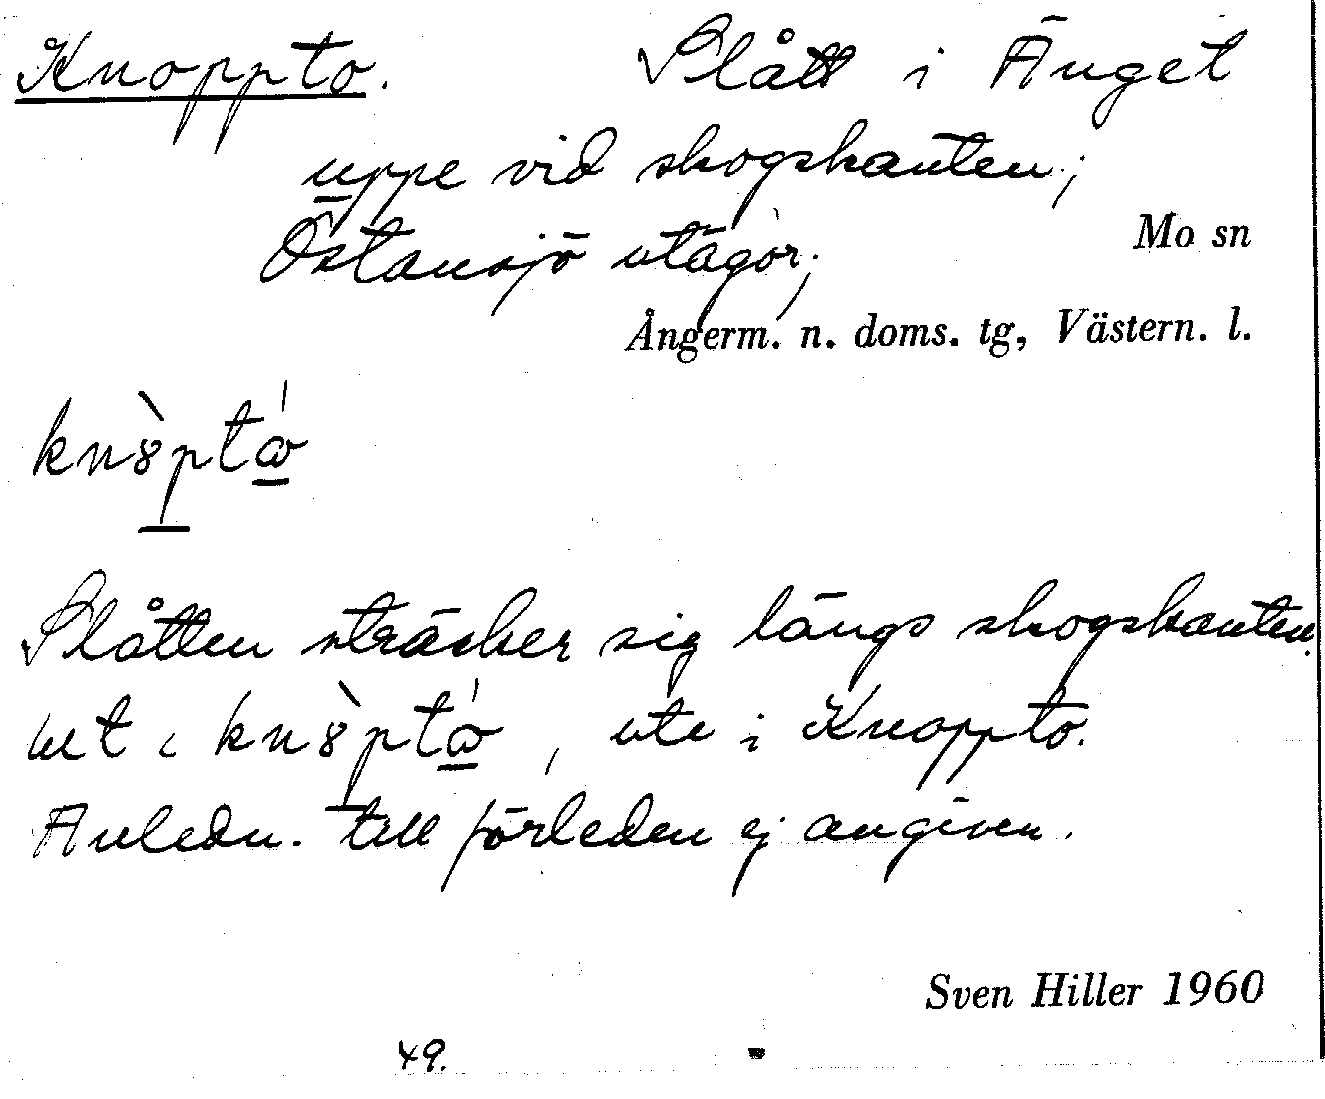 Knoppto. Slått i Änget
uppe vid skogskanten;
Östansjö utägor; Mo sn
Ångerm. n. doms. tg, Västern. l.
Slåtten sträcker sig längs skogskanten.
ute i Knoppto.
Anledn. till förleden ej angiven.
Sven Hiller 1960
49.